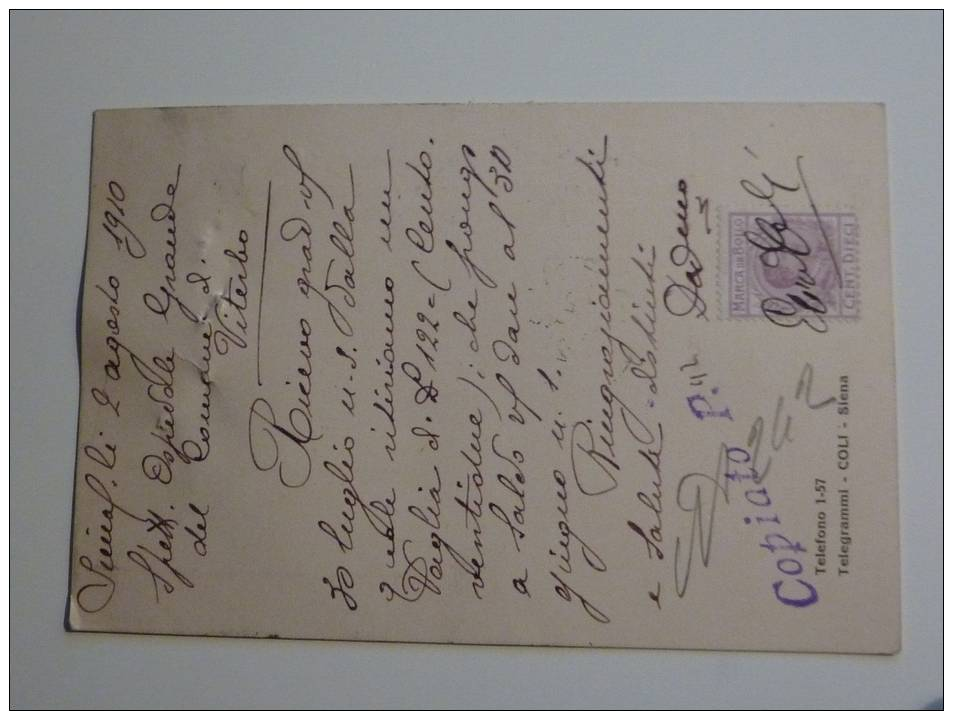 Siena, li 2 agosto 1910
Spett. Ospedale Grande
del Comune di
Viterbo
Ricevo grad.
30 luglio u.s. dalla
quale ritiriamo un
Vaglia di £ 122 = (Cento.
ventidue) che pongo
a saldo dare al 30
giugno u. s.
Ringraziamenti
e salute distinti
MARCA DA BOLLO
CENT. DIECI
Copiato P.
Telefono 1-57
Telegrammi - COLI - Siena